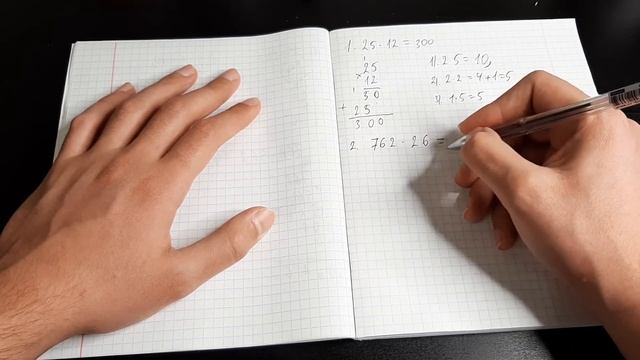 1. 25 · 12 = 300
1
25
× 12
1 50
+ 25
300
1). 2·5 = 10,
2). 2·2 = 4+1=5
3). 1·5 = 5
2. 762 · 26 =